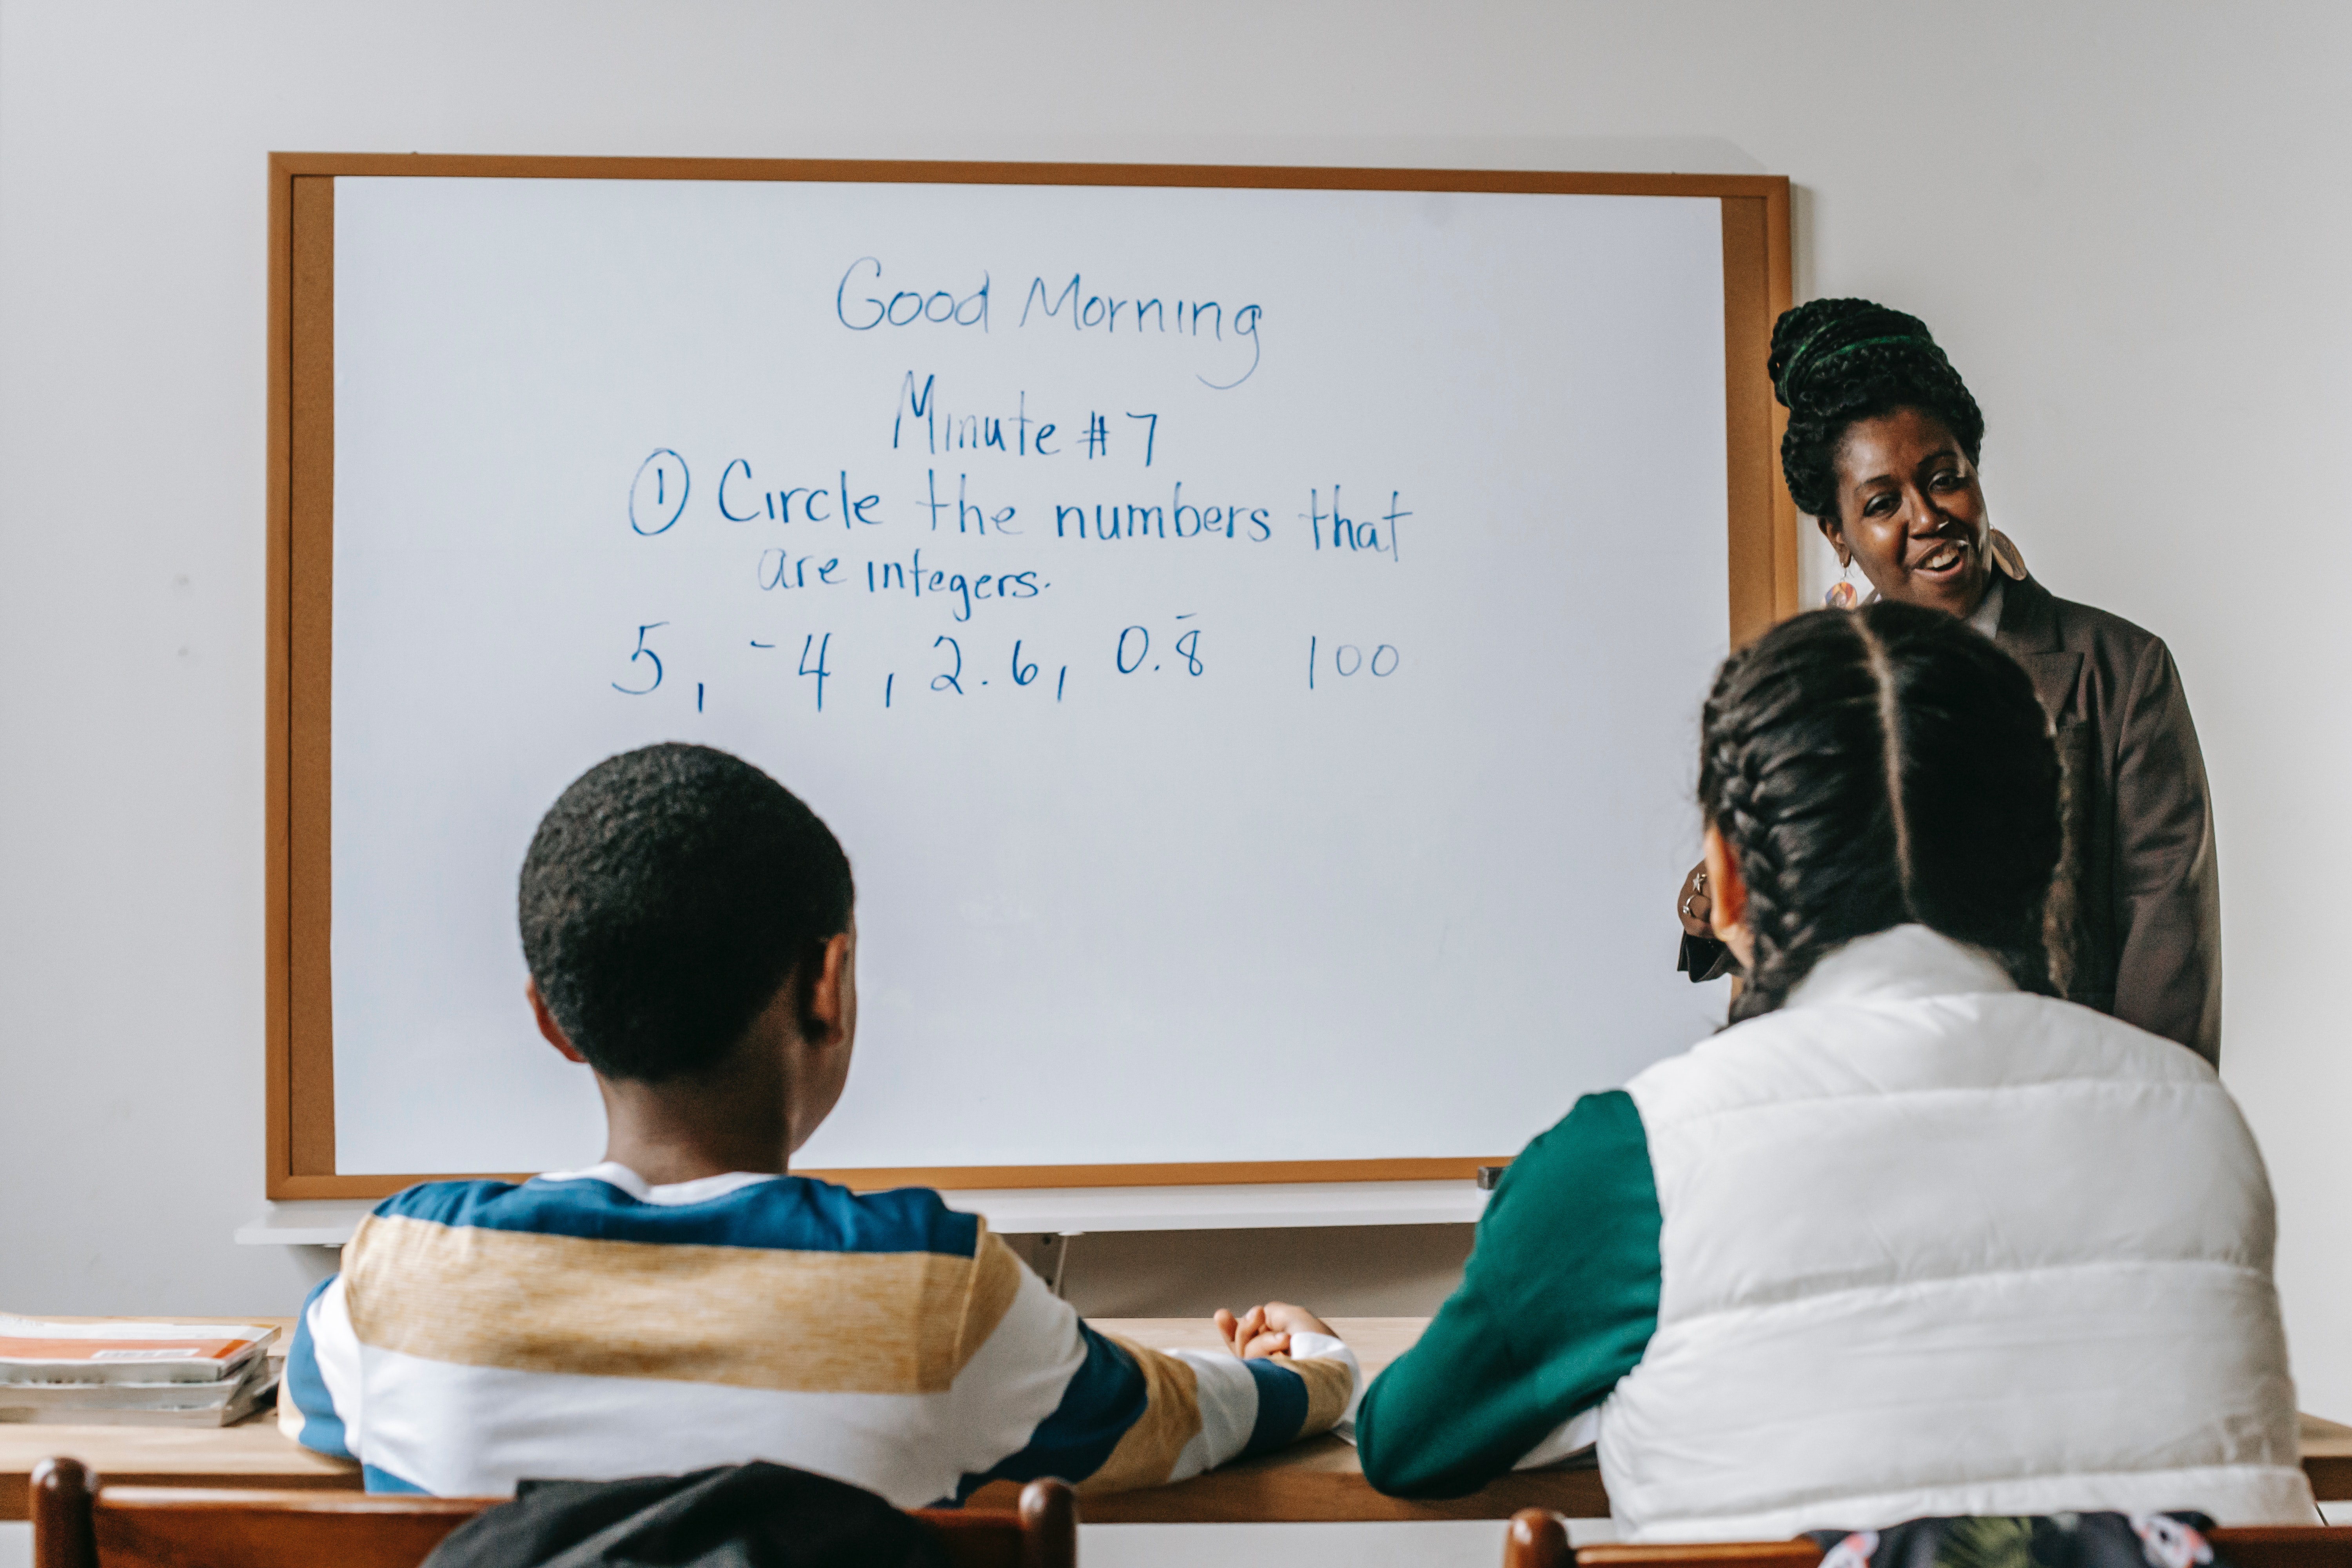 Good Morning
Minute # 7
① Circle the numbers that
are integers.
5, -4, 2.6, 0.8̅ 100